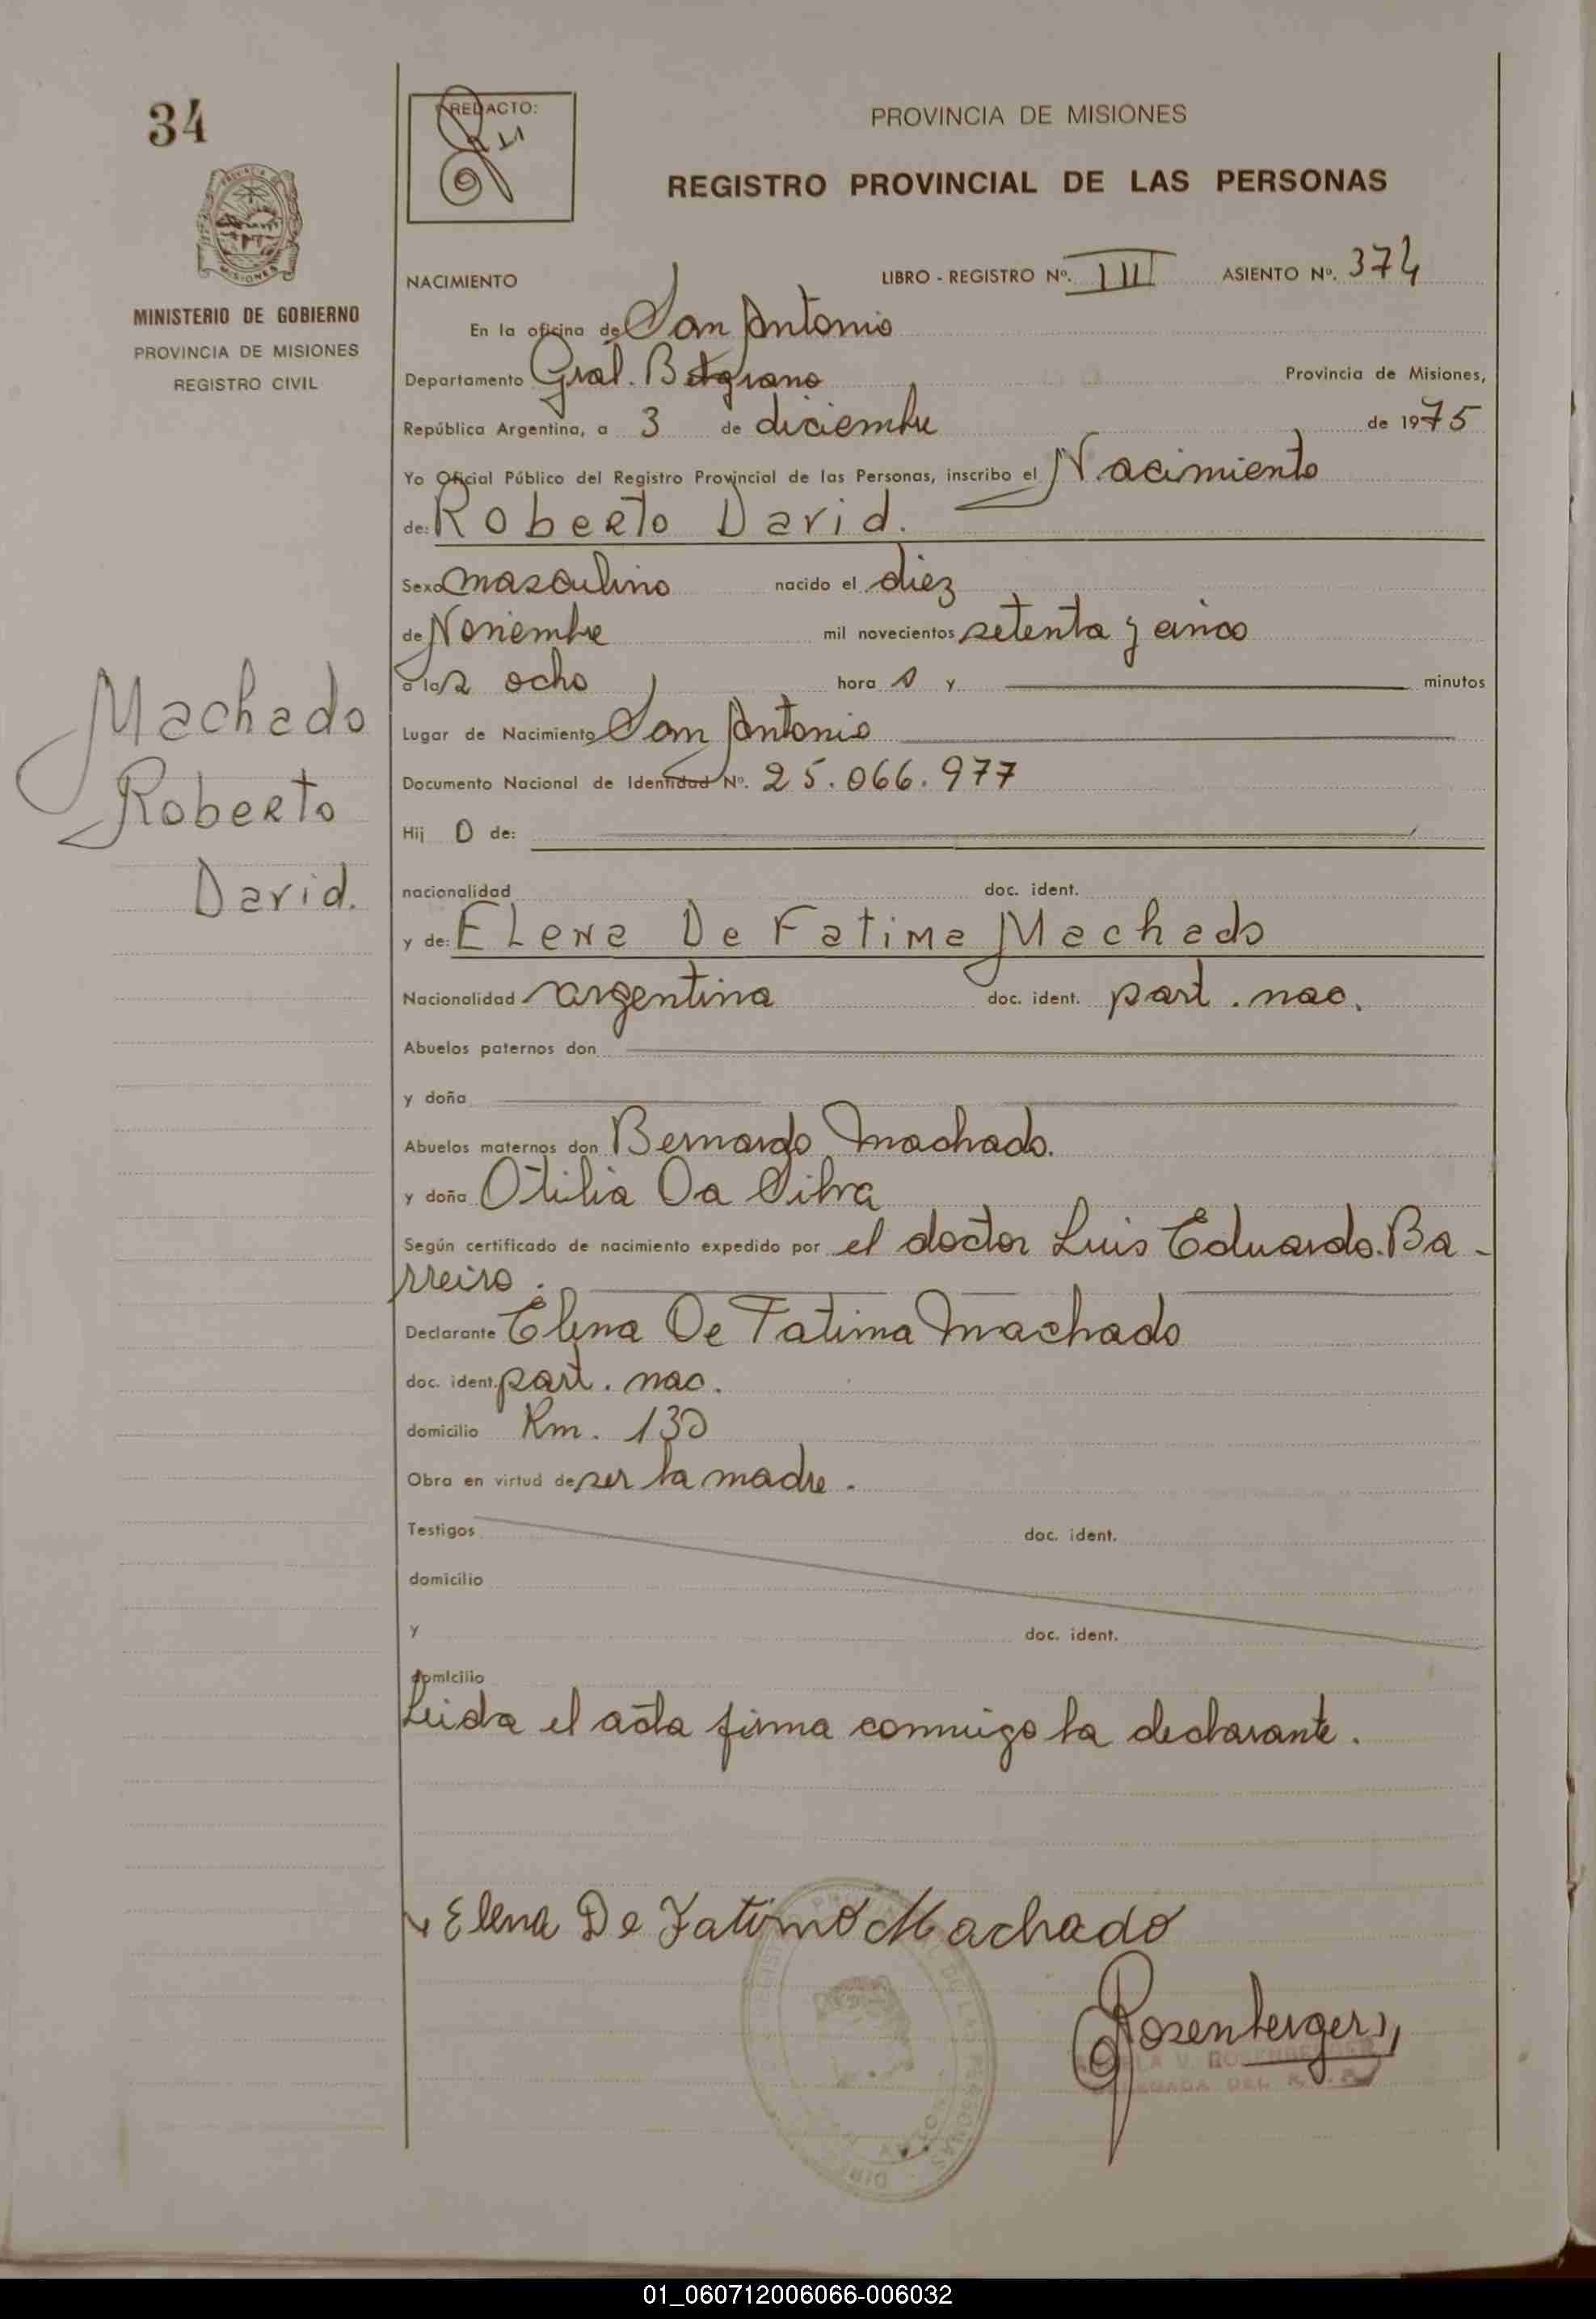 34
REDACTO:
PROVINCIA DE MISIONES
REGISTRO PROVINCIAL DE LAS PERSONAS
MISIONES
MINISTERIO DE GOBIERNO
PROVINCIA DE MISIONES
REGISTRO CIVIL
NACIMIENTO LIBRO - REGISTRO Nº. III ASIENTO Nº. 374
En la oficina de San Antonio
Departamento Gral. Belgrano Provincia de Misiones,
República Argentina, a 3 de diciembre de 1975
Yo Oficial Público del Registro Provincial de las Personas, inscribo el Nacimiento
de: Roberto David.
Sexo masculino nacido el diez
de Noviembre mil novecientos setenta y cinco
a las ocho hora s y minutos
Machado
Roberto
David.
Lugar de Nacimiento San Antonio
Documento Nacional de Identidad Nº. 25.066.977
Hij o de:
nacionalidad doc. ident.
y de: Elena De Fatima Machado
Nacionalidad argentina doc. ident. part. nac.
Abuelos paternos don
y doña
Abuelos maternos don Bernardo Machado.
y doña Otilia Da Silva
Según certificado de nacimiento expedido por el doctor Luis Eduardo Ba-
rreiro.
Declarante Elena De Fatima Machado
doc. ident. part. nac.
domicilio Km. 130
Obra en virtud de ser la madre.
Testigos doc. ident.
domicilio
y doc. ident.
domicilio
Leida el acta firma conmigo la declarante.
Elena De Fatima Machado
Rosenberger
V. ROSENBERGER
DELEGADA DEL R.P.P.
01_060712006066-006032